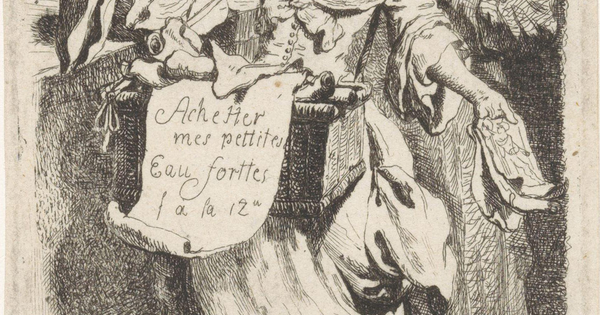 Achetter
mes pettites
Eau forttes
1 a la 12ᵘ